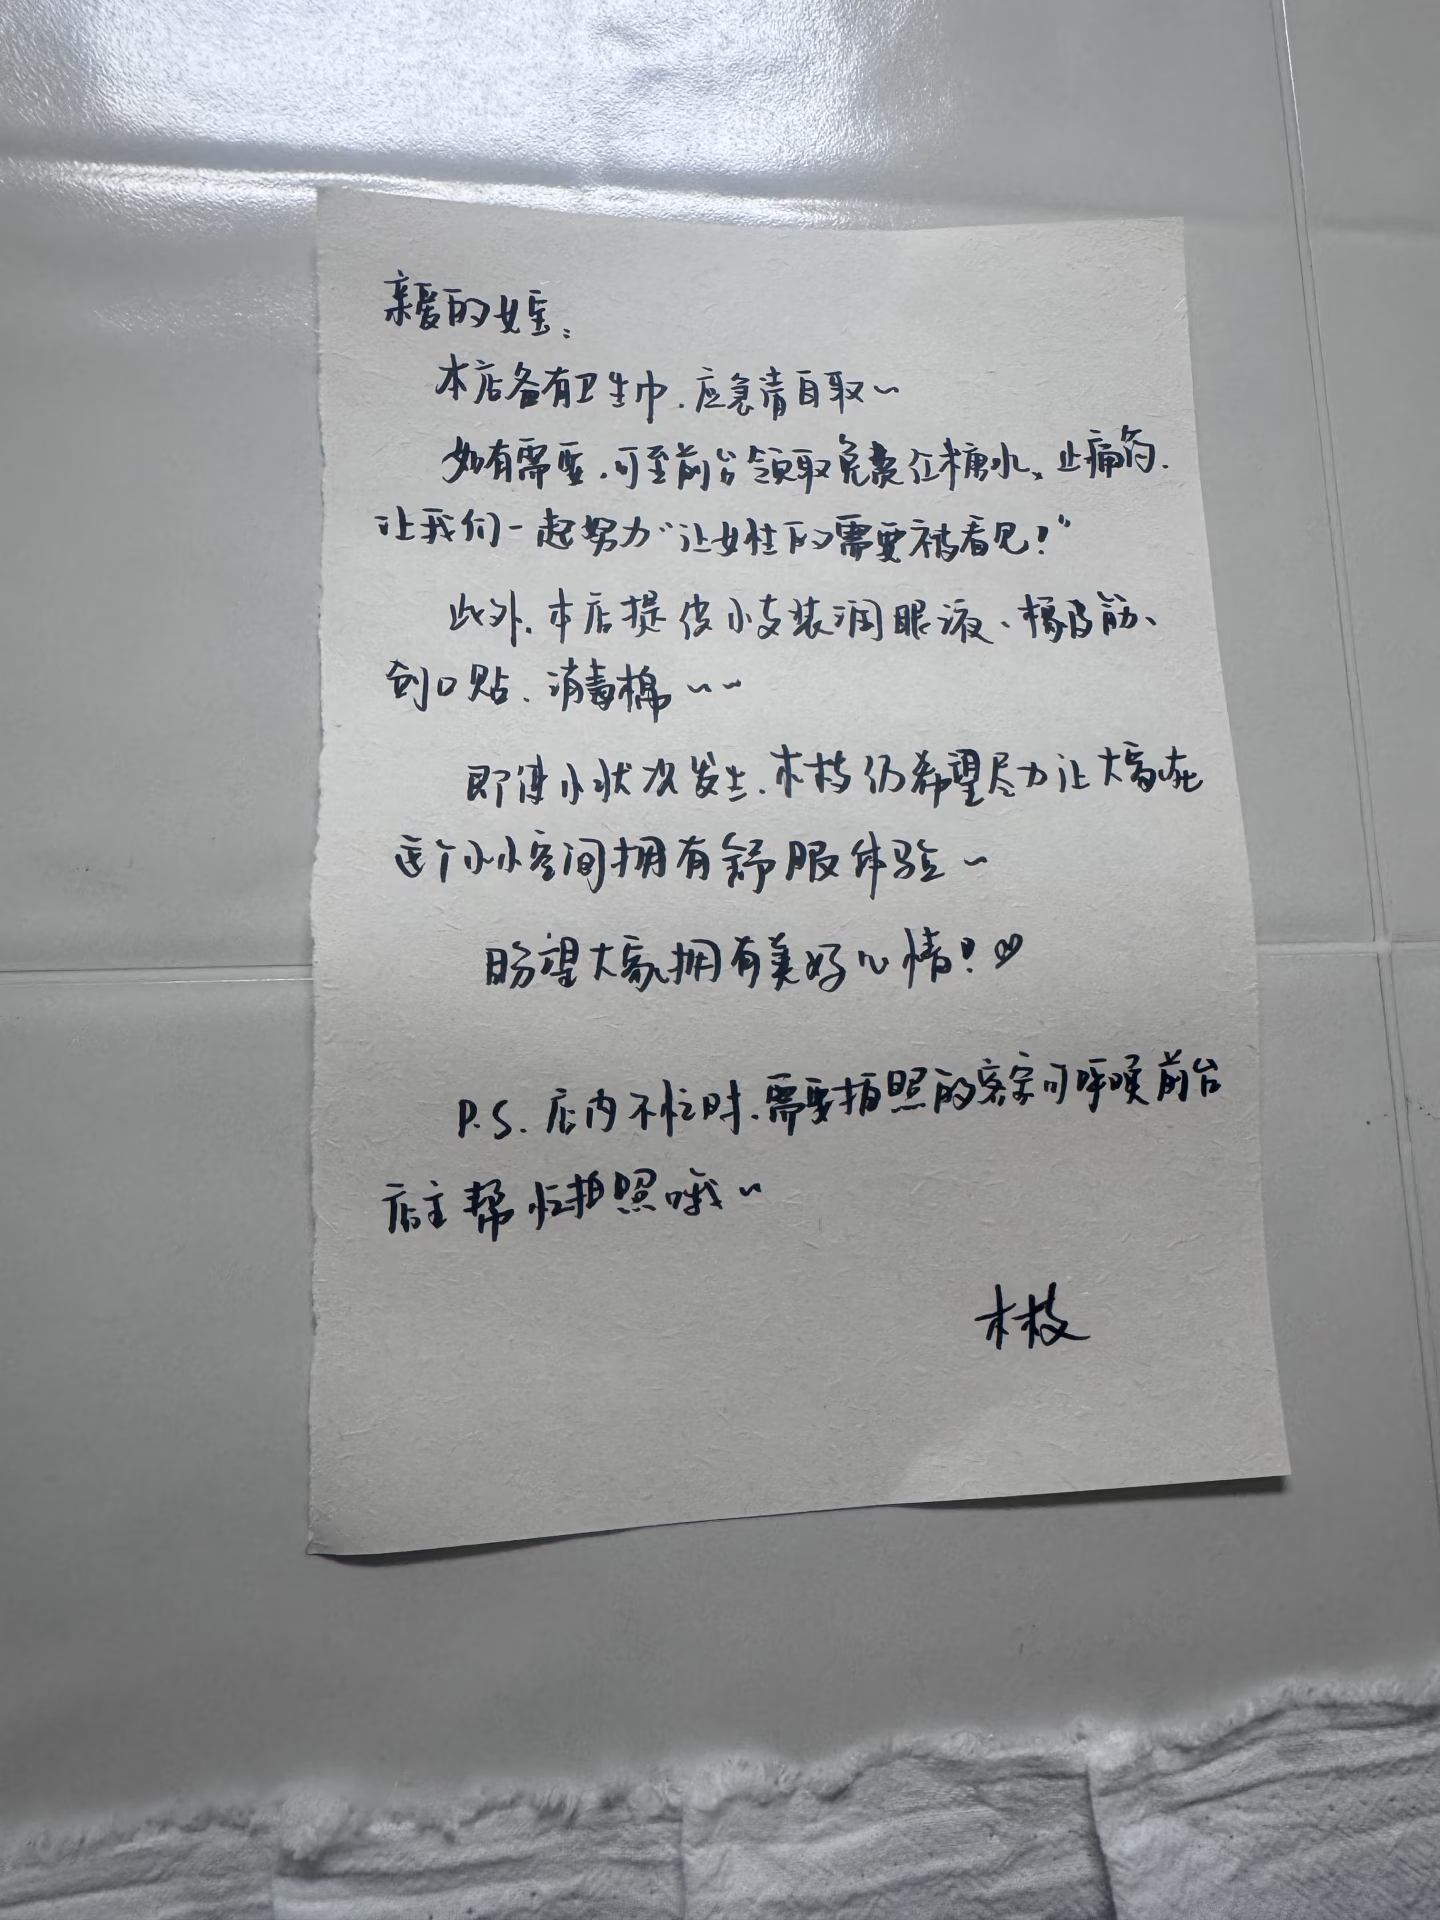 亲爱的女宝：
本店备有卫生巾，应急请自取～
如有需要，可至前台领取免费红糖水、止痛药，
让我们一起努力“让女性的需要被看见！”
此外，本店提供小支装润眼液、橡皮筋、
创口贴、消毒棉～～
即使小状况发生，木枝仍希望尽力让大家在
这个小小空间拥有舒服体验～
盼望大家拥有美好心情！♡
P.S. 店内不忙时，需要拍照的客家可呼唤前台
店主帮忙拍照哦～
木枝